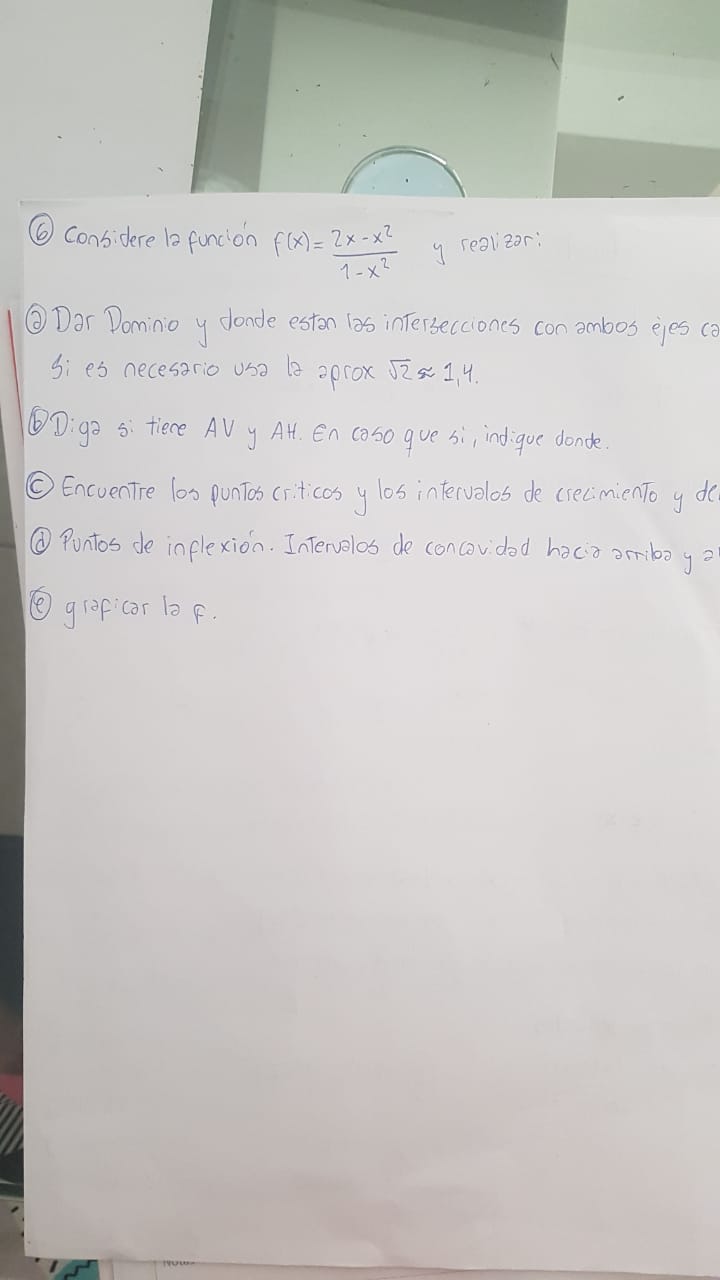 ⑥ Considere la función f(x) = (2x - x²)/(1 - x²) y realizar:
ⓐ Dar Dominio y donde estan las intersecciones con ambos ejes
Si es necesario usa la aprox √2 ≈ 1,4.
ⓑ Diga si tiene AV y AH. En caso que si, indique donde.
ⓒ Encuentre los puntos criticos y los intervalos de crecimiento y
ⓓ Puntos de inflexión. Intervalos de concavidad hacia arriba y
ⓔ graficar la f.